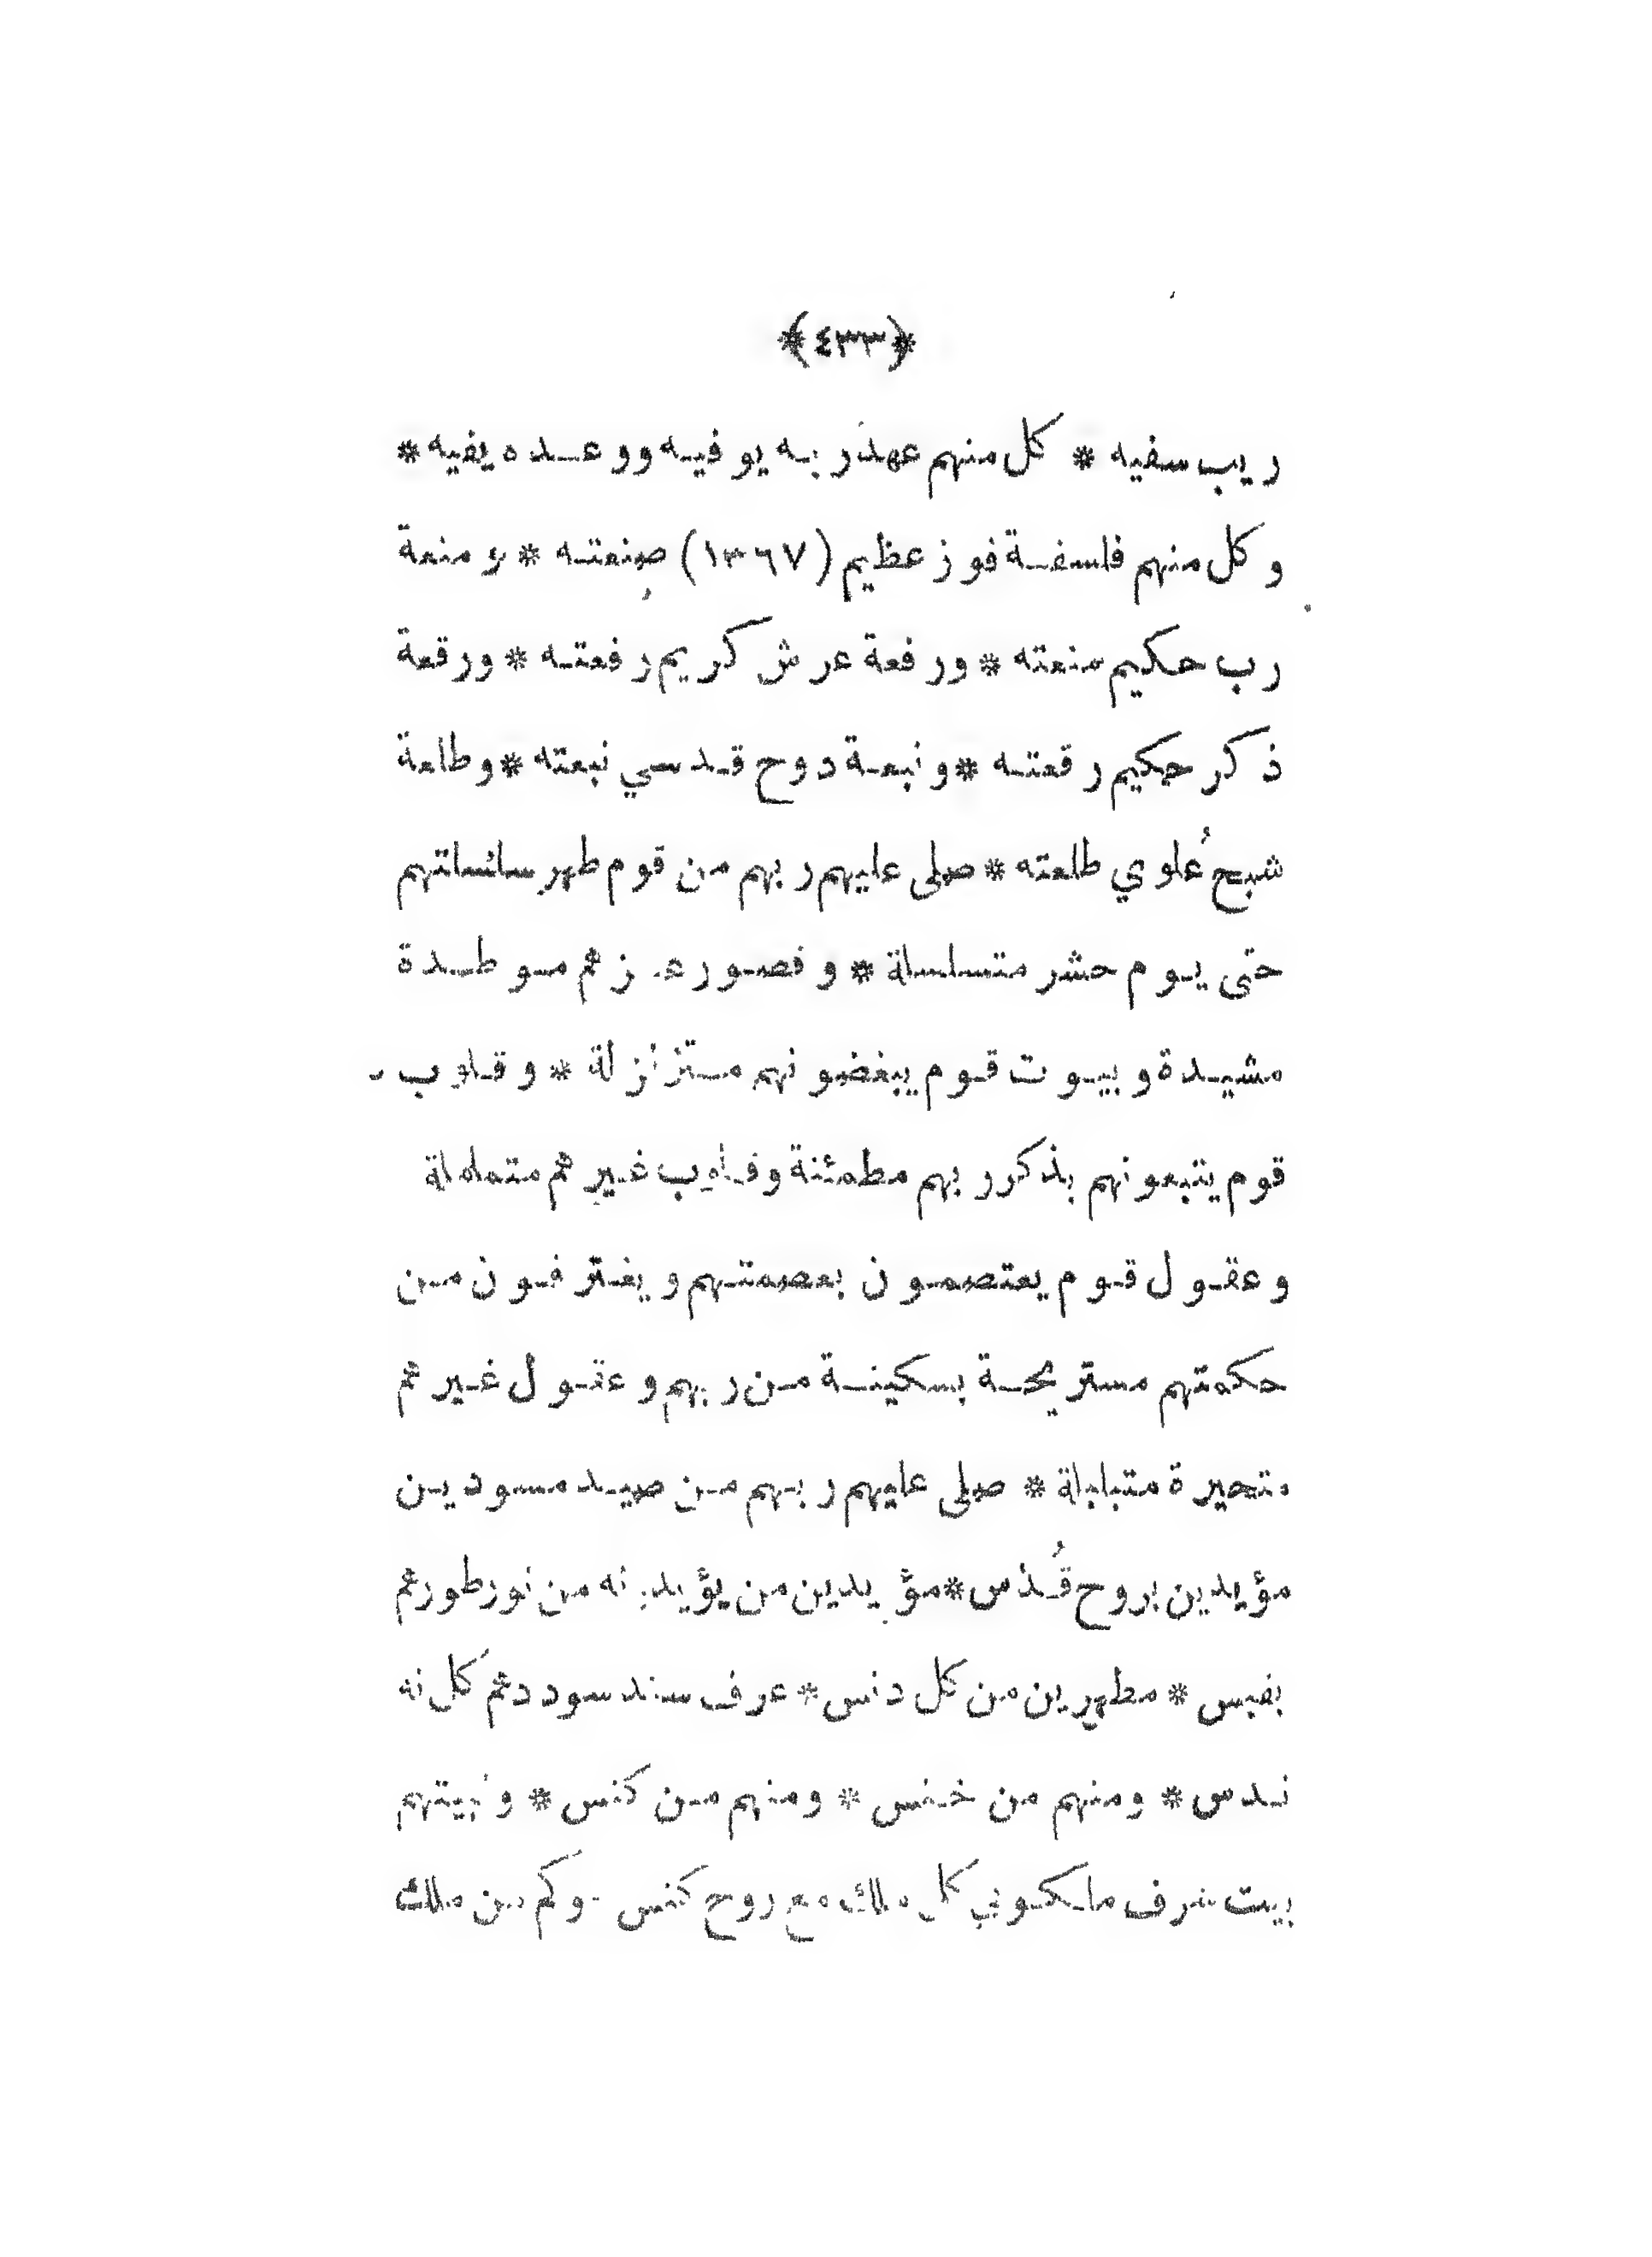 ﴿٤٣٣﴾
ريب سفيه * كل منهم عهد ربه يوفيه ووعده يفيه *
وكل منهم فلسفة فوز عظيم (١٣٦٧) صنعته * ومنعة
رب حكيم منعته * ورفعة عرش كريم رفعته * ورقعة
ذكر حكيم رقعته * ونبعة دوح قدسي نبعته * وطلعة
شبح عُلوي طلعته * صلى عليهم ربهم من قوم طهر سلسلتهم
حتى يوم حشر متسلسلة * وقصور عزهم موطدة
مشيدة وبيوت قوم يبغضونهم متزلزلة * وقلوب
قوم يتبعونهم بذكر ربهم مطمئنة وقلوب غيرهم متململة
وعقول قوم يعتصمون بعصمتهم ويغترفون من
حكمتهم مستريحة بسكينة من ربهم وعقول غيرهم
متحيرة متبلبلة * صلى عليهم ربهم من صيد مسودين
مؤيدين بروح قُدس * مؤيدين من يؤيدونه من نور طورهم
بقبس * مطهرين من كل دنس * عرف سند سوددهم كل
ندس * ومنهم من خنس * ومنهم من كنس * وبيتهم
بيت شرف ملكوتي كل ملك مع روح كنس وكم من ملك